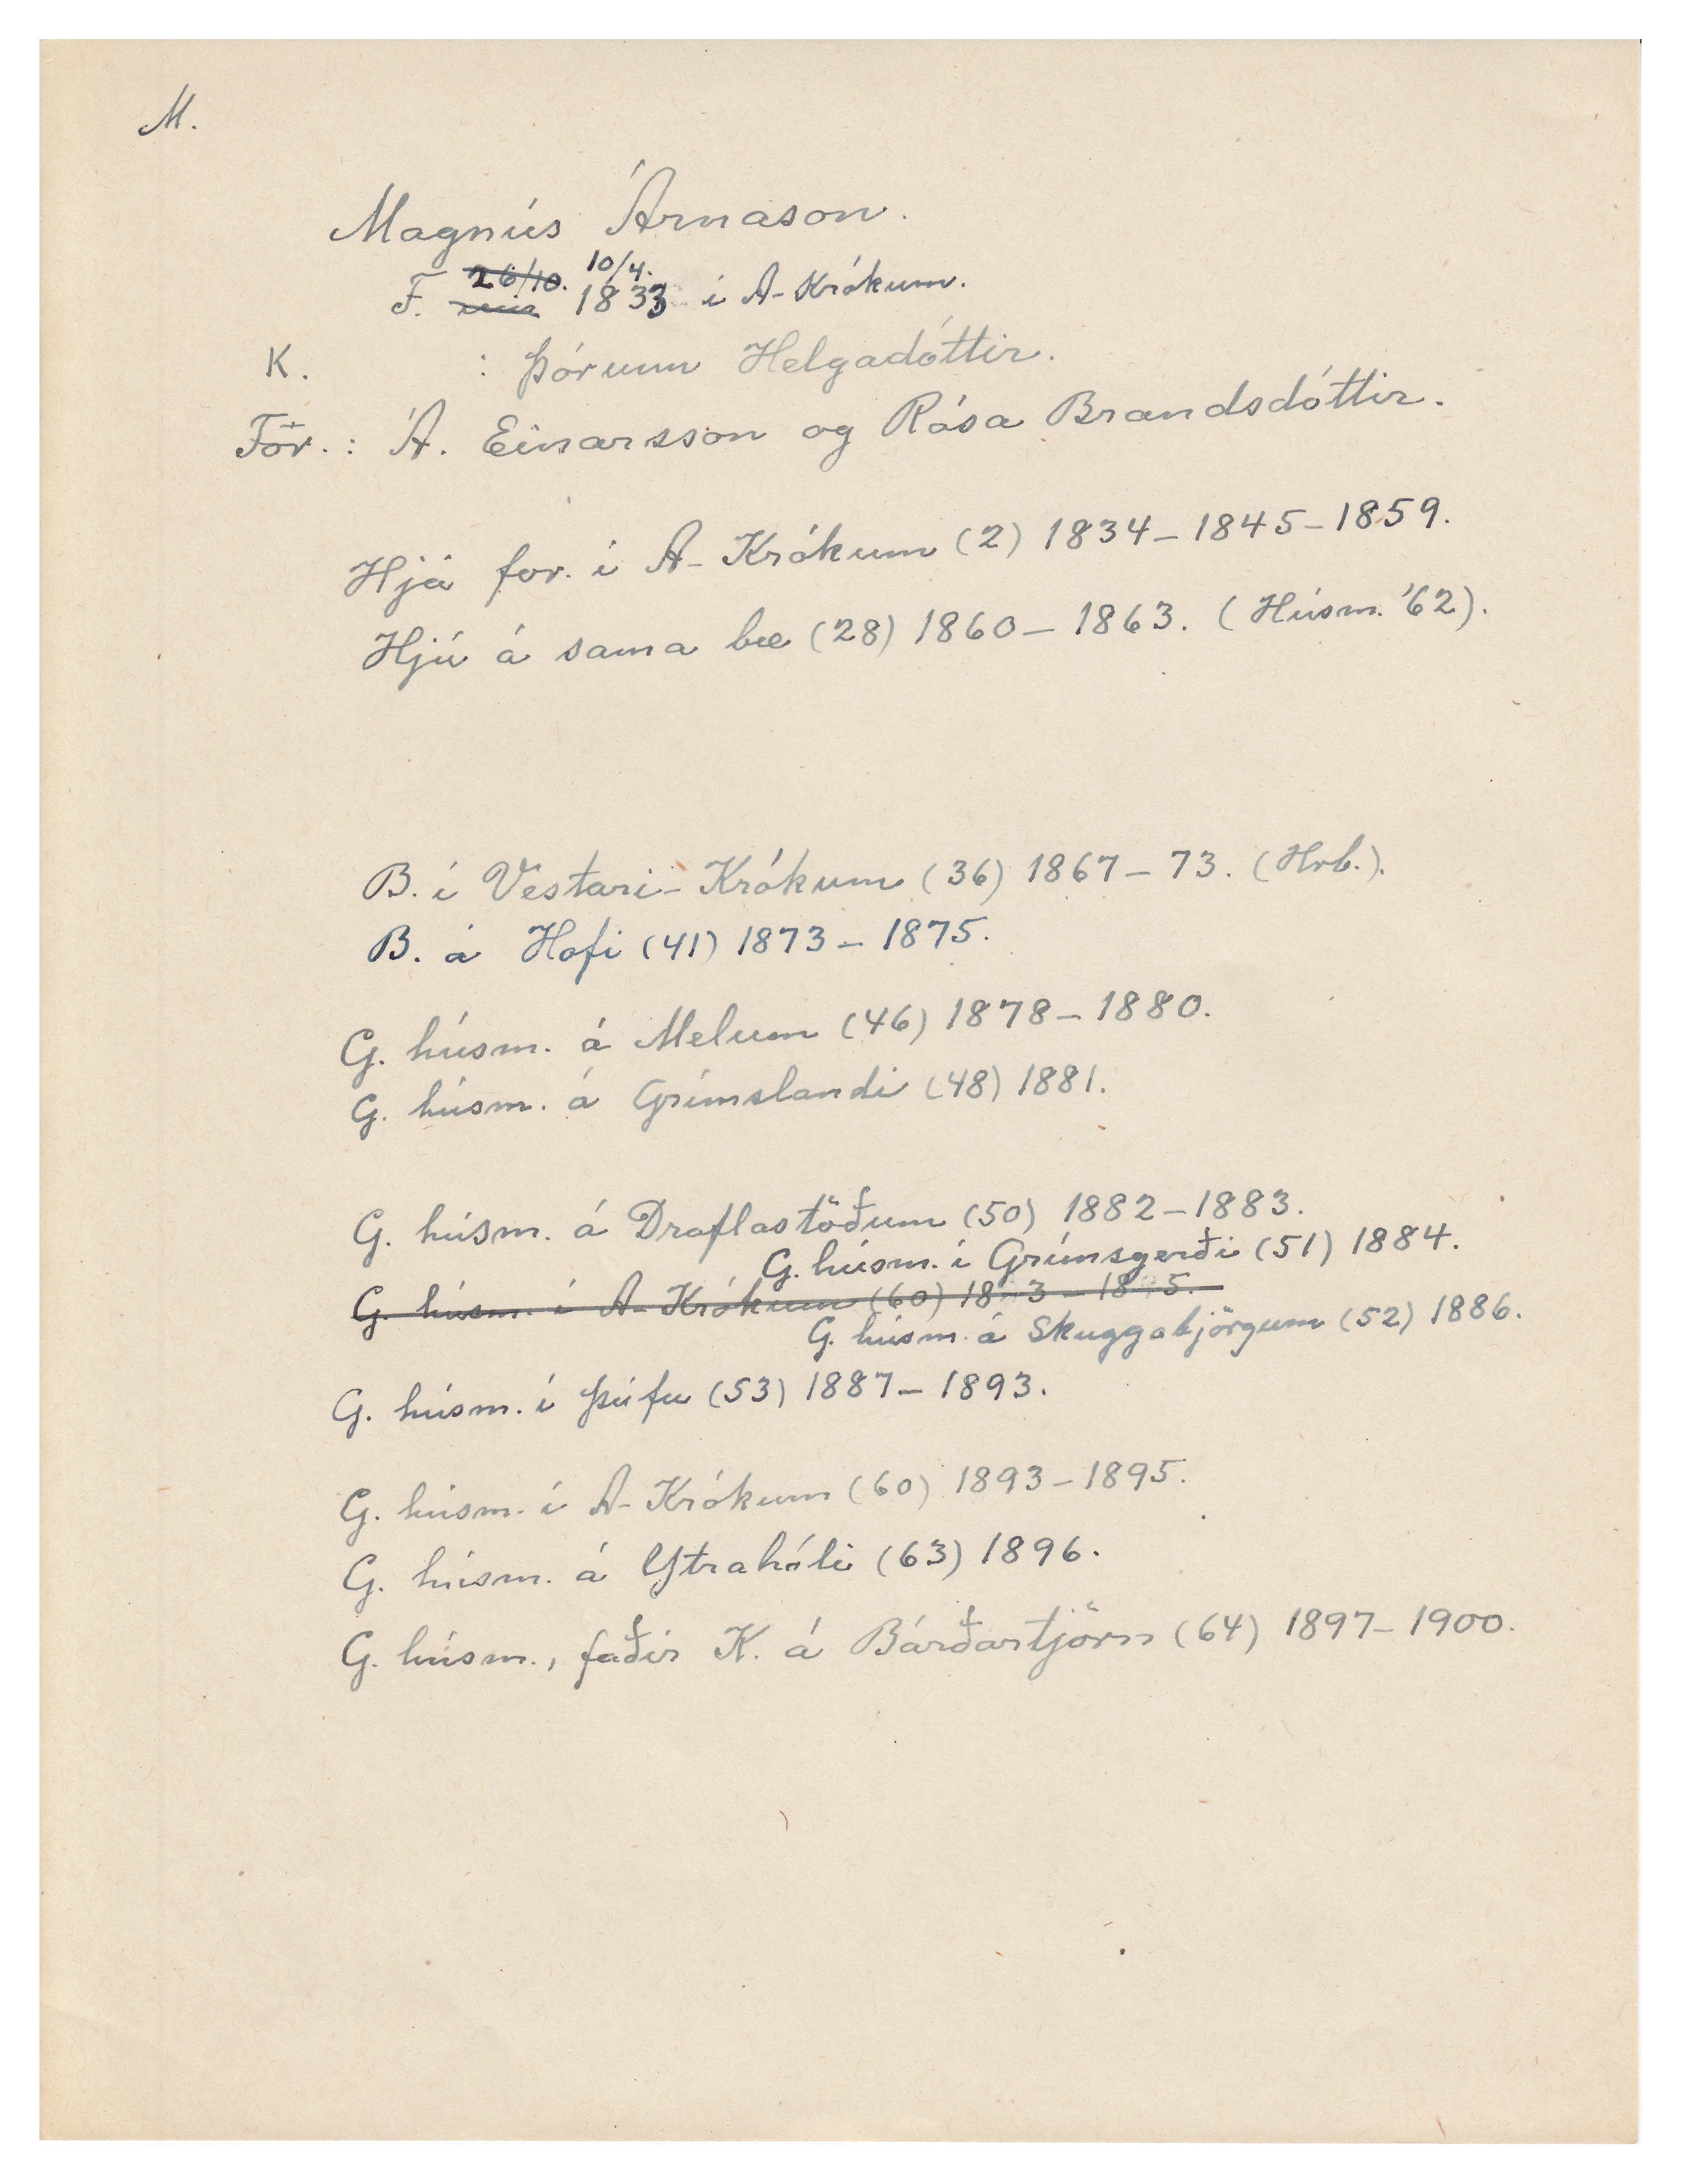 M.
Magnús Árnason.
26/10. 10/4.
F. 1833 í A-Krókum.
K. : Þórunn Helgadóttir.
For.: Á. Einarsson og Rósa Brandsdóttir.
Hjá for. í A-Krókum (2) 1834-1845-1859.
Hjú á sama bæ (28) 1860-1863. (Húsm. '62).
B. í Vestari-Krókum (36) 1867-73. (Hrb.).
B. á Hofi (41) 1873-1875.
G. húsm. á Melum (46) 1878-1880.
G. húsm. á Grímslandi (48) 1881.
G. húsm. á Draflastöðum (50) 1882-1883.
G. húsm. í Grímsgerði (51) 1884.
G. húsm. í A-Krókum (60)
G. húsm. á Skuggabjörgum (52) 1886.
G. húsm. í Þúfu (53) 1887-1893.
G. húsm. í A-Krókum (60) 1893-1895.
G. húsm. á Ytrahóli (63) 1896.
G. húsm., faðir K. á Bárðartjörn (64) 1897-1900.